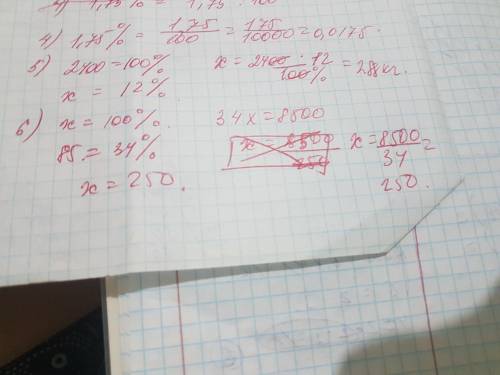 4) 1,75% = 1,75/100 = 175/10000 = 0,0175.
5) 2400 = 100% x = 2400 · 12/100% = 288кг.
x = 12%
6) x = 100%. 34x = 8500
85 = 34% x = 8500/34 =
x = 250. 250.